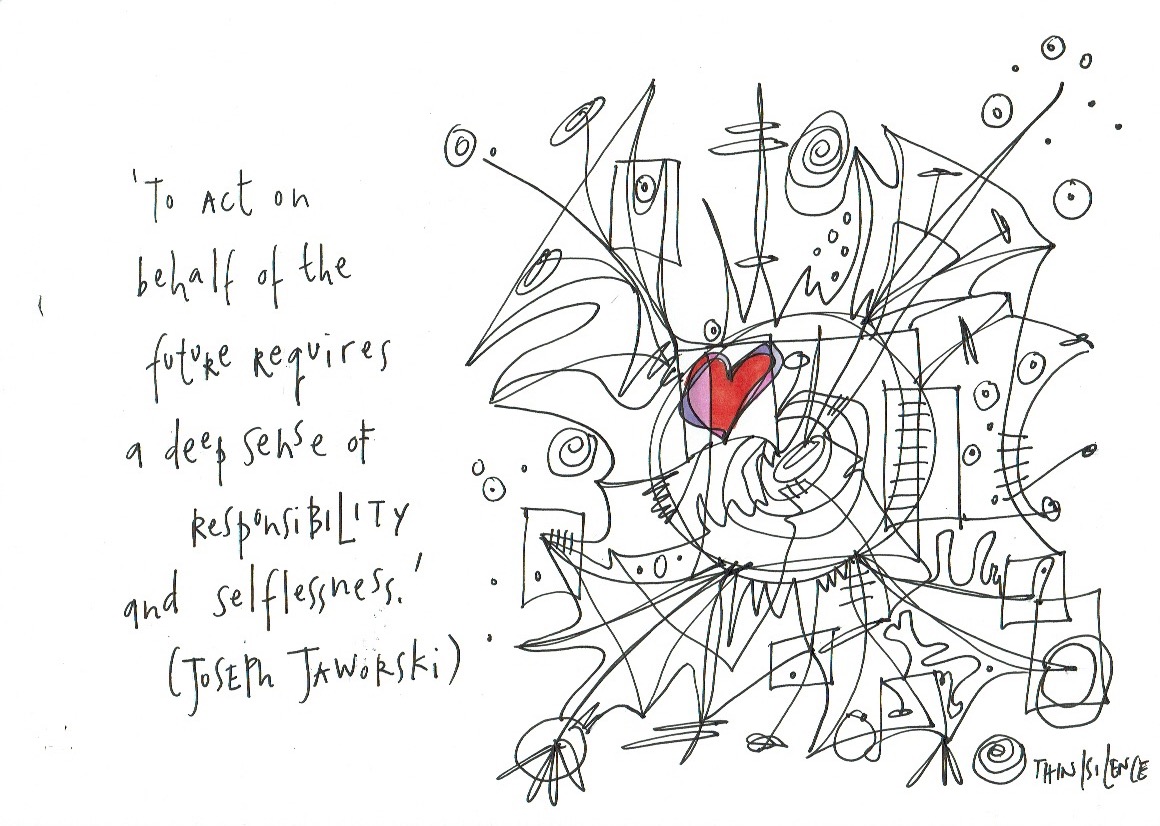 'To Act on
behalf of the
future requires
a deep sense of
RESponSiBILITY
and selflessness.'
(JOSEPh JAWORSKi)
THIN/SILENCE